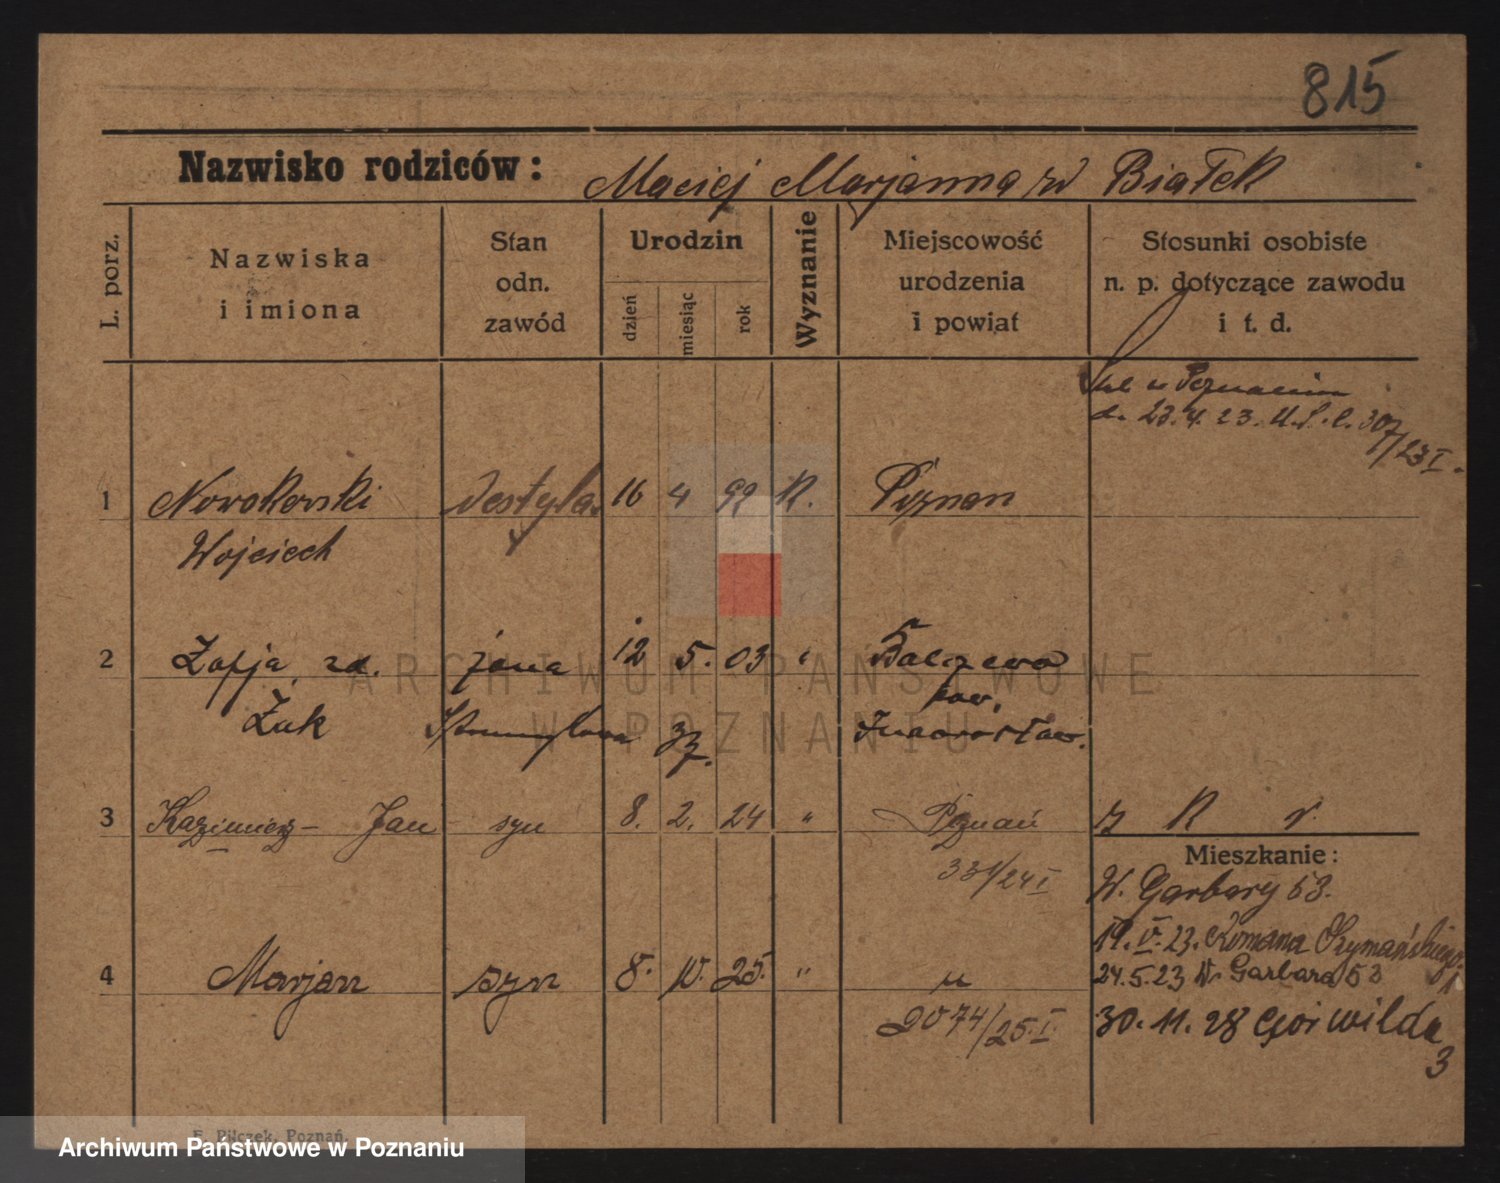 815
Nazwisko rodziców: Maciej Marjanna zd Białek
L. porz.
Nazwiska i imiona
Stan odn. zawód
Urodzin
dzień
miesiąc
rok
Wyznanie
Miejscowość urodzenia i powiat
Stosunki osobiste n. p. dotyczące zawodu i t. d.
w Poznaniu
d. 23.4.23. U.S.C. 307/23 I.
1 Nowakowski 16 4 92 K. Poznan
Wojciech
2 Zofja zd. żona 12 5. 03 "
Żak pow.
3 Kazimierz - Jan syn 8. 2. 24 " Poznań
331/24 I
Mieszkanie:
W. Garbary 53.
19. V. 23. Romana Szymańskiego 1
4 Marjan syn 8. 10. 25. " "
24.5.23 W. Garbara 53
2074/25. I.
30. 11. 28 Gór Wilda
3
F. Pilczek, Poznań.
ARCHIWUM PAŃSTWOWE
W POZNANIU
Archiwum Państwowe w Poznaniu